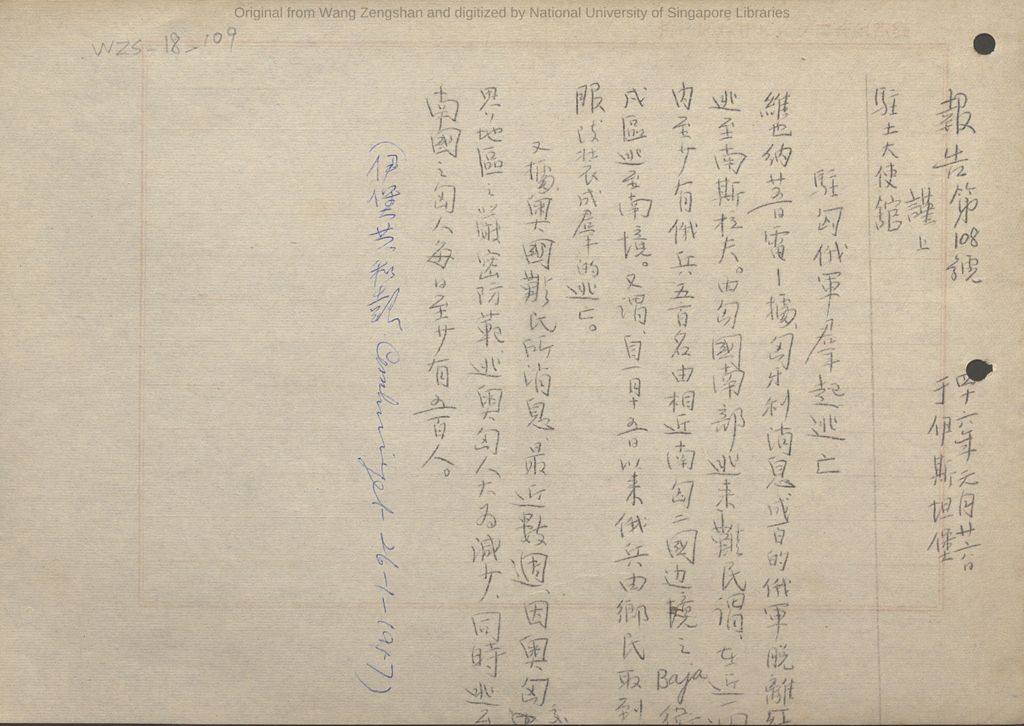 Original from Wang Zengshan and digitized by National University of Singapore Libraries
WZS-18-109
報告第108號
四十六年元月廿六日
于伊斯坦堡
謹上
駐土大使館
駐匈俄軍羣起逃亡
維也納廿五日電—據匈牙利消息成百的俄軍脫離紅
逃至南斯拉夫。由匈國南部逃来難民謂、在近一
内至少有俄兵五百名由相近南匈二國边境之 Baja
戍區逃至南境。又謂、自一月十五日以来俄兵由鄉民取到
服改壮衣成羣的逃亡。
又據奧國難民所消息、最近數週、因奧匈
界地區之以嚴密防範、逃奧匈人大為減少、同時逃去
南國之匈人每日至少有五百人。
(伊堡共和報 Cumhuriyet 26-1-1957)